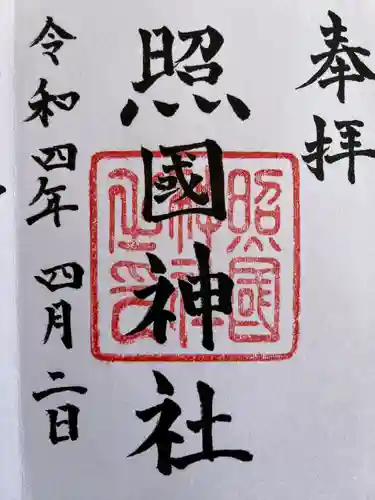 奉拝
照國神社
照國神社之印
令和四年 四月 二日